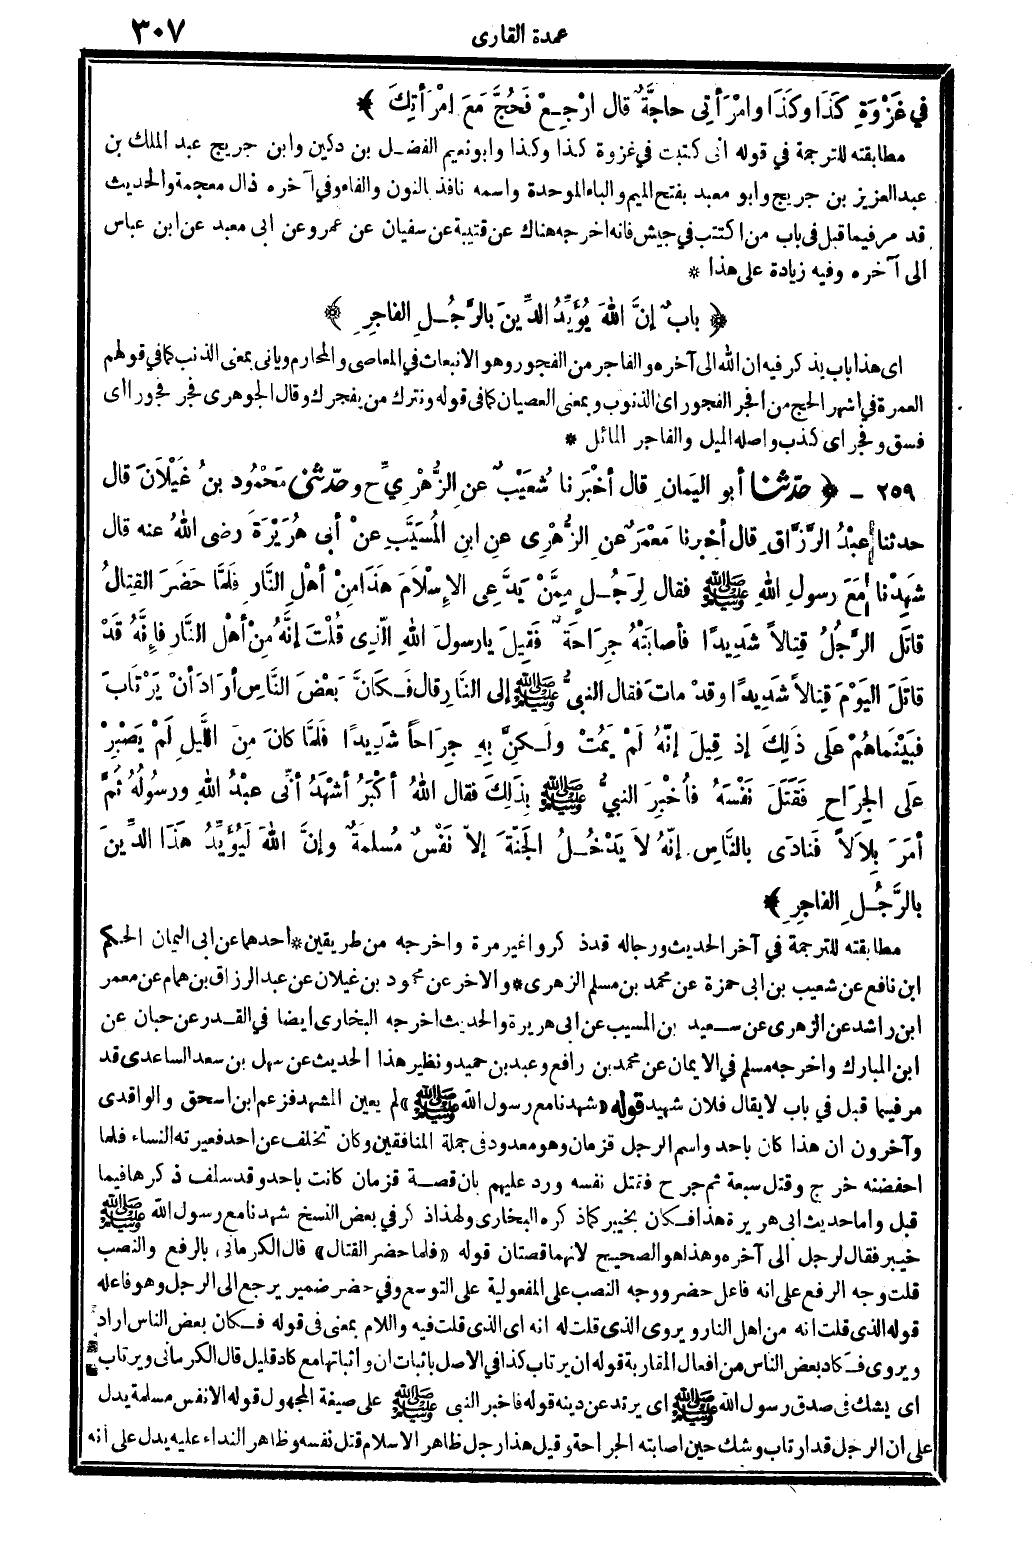 عمدة القارى ٣٠٧
في غَزْوَةِ كَذَا وكَذَا وامْرَأتِى حاجَّةٌ قال ارْجِعْ فَحُجَّ مَعَ امْرَأتِكَ ﴾
مطابقته للترجمة في قوله انى كتبت في غزوة كذا وكذا وابو نعيم الفضل بن دكين وابن جريج عبد الملك بن
عبد العزيز بن جريج وابو معبد بفتح الميم والباء الموحدة واسمه نافذ بالنون والفاء وفي آخره ذال معجمة والحديث
قد مر فيما قبل فى باب من اكتتب في جيش فانه اخرجه هناك عن قتيبة عن سفيان عن عمرو عن ابى معبد عن ابن عباس
الى آخره وفيه زيادة على هذا *
﴿ بابٌ إنَّ اللهَ يُؤَيِّدُ الدِّينَ بالرَّجُلِ الفاجِرِ ﴾
اى هذا باب يذكر فيه ان الله الى آخره والفاجر من الفجور وهو الانبعاث في المعاصى والمحارم ويأتى بمعنى الذنب كما في قولهم
العمرة في اشهر الحج من افجر الفجور اى الذنوب وبمعنى العصيان كما فى قوله ونترك من يفجرك وقال الجوهرى فجر فجورا اى
فسق وفجر اى كذب واصله الميل والفاجر المائل *
٢٥٩ - ﴿ حدّثنا أبو اليَمانِ قال أخْبَرَنا شُعَيْبٌ عنِ الزُّهْرِيِّ ح وحدّثنى مَحْمُودُ بنُ غَيْلَانَ قال
حدثنا عبْدُ الرَّزَّاقِ قال أخبرنا مَعْمَرٌ عنِ الزُّهْرِى عنِ ابنِ المُسَيَّبِ عنْ أبى هُرَيْرَةَ رضى اللهُ عنه قال
شَهِدْنا مَعَ رسولِ اللهِ ﷺ فقال لِرَجُلٍ مِمَّنْ يَدَّعِى الإسْلَامَ هَذَا مِنْ أهْلِ النَّارِ فَلَمَّا حَضَرَ القِتالُ
قاتَلَ الرَّجُلُ قِتالاً شَدِيدًا فأصابَتْهُ جِرَاحَةٌ فَقِيلَ يارسولَ اللهِ الَّذِى قُلْتَ إنَّهُ مِنْ أهْلِ النَّارِ فإنَّهُ قَدْ
قاتَلَ اليَوْمَ قِتالاً شَدِيدًا وقدْ ماتَ فقال النبيُّ ﷺ إلى النَّارِ قال فَكادَ بَعْضُ النَّاسِ أرَادَ أنْ يَرْتَابَ
فبَيْنَما هُمْ على ذَلِكَ إذ قِيلَ إنَّهُ لَمْ يَمُتْ ولَكِنَّ بِهِ جِرَاحاً شَدِيدًا فلَمَّا كانَ مِنَ اللَّيلِ لَمْ يَصْبِرْ
علَى الجِرَاحِ فَقَتَلَ نَفْسَهُ فأُخْبِرَ النبيُّ ﷺ بِذَلِكَ فقال اللهُ أكْبَرُ أشْهَدُ أنِّى عبْدُ اللهِ ورسُولُهُ ثُمَّ
أمَرَ بِلَالاً فَنادَى بالنَّاسِ إنَّهُ لَا يَدْخُلُ الجَنَّةَ إلَّا نَفْسٌ مُسلِمَةٌ وإنَّ اللهَ لَيُؤَيِّدُ هَذَا الدِّينَ
بالرَّجُلِ الفاجِرِ ﴾
مطابقته للترجمة في آخر الحديث ورجاله قد ذكروا غير مرة واخرجه من طريقين * احدهما عن ابى اليمان الحكم
ابن نافع عن شعيب بن ابى حمزة عن محمد بن مسلم الزهرى * والاخر عن محمود بن غيلان عن عبد الرزاق بن همام عن معمر
ابن راشد عن الزهرى عن سعيد بن المسيب عن ابى هريرة والحديث اخرجه البخارى ايضا في القدر عن حبان عن
ابن المبارك واخرجه مسلم في الايمان عن محمد بن رافع وعبد بن حميد ونظير هذا الحديث عن سهل بن سعد الساعدى قد
مر فيما قبل في باب لا يقال فلان شهيد قوله «شهدنا مع رسول الله ﷺ» لم يعين المشهد فزعم ابن اسحق والواقدى
وآخرون ان هذا كان باحد واسم الرجل قزمان وهو معدود فى جملة المنافقين وكان تخلف عن احد فعيرته النساء فلما
احفضنه خرج وقتل سبعة ثم جرح فقتل نفسه ورد عليهم بان قصة قزمان كانت باحد وقد سلف ذكرها فيما
قبل واما حديث ابى هريرة هذا فكان بخيبر كما ذكره البخارى ولهذا ذكر في بعض النسخ شهدنا مع رسول الله ﷺ
خيبر فقال لرجل الى آخره وهذا هو الصحيح لانهما قصتان قوله «فلما حضر القتال» قال الكرمانى بالرفع والنصب
قلت وجه الرفع على انه فاعل حضر ووجه النصب على المفعولية على التوسع وفي حضر ضمير يرجع الى الرجل وهو فاعله
قوله الذى قلت انه من اهل النار ويروى الذى قلت له انه اى الذى قلت فيه واللام بمعنى فى قوله فكان بعض الناس اراد
ويروى فكاد بعض الناس من افعال المقاربة قوله ان يرتاب كذا في الاصل باثبات ان واثباتها مع كاد قليل قال الكرمانى ويرتاب
اى يشك فى صدق رسول الله ﷺ اى يرتد عن دينه قوله فاخبر النبى ﷺ على صيغة المجهول قوله الا نفس مسلمة يدل
على ان الرجل قد ارتاب وشك حين اصابته الجراحة وقيل هذا رجل ظاهر الاسلام قتل نفسه وظاهر النداء عليه يدل على انه